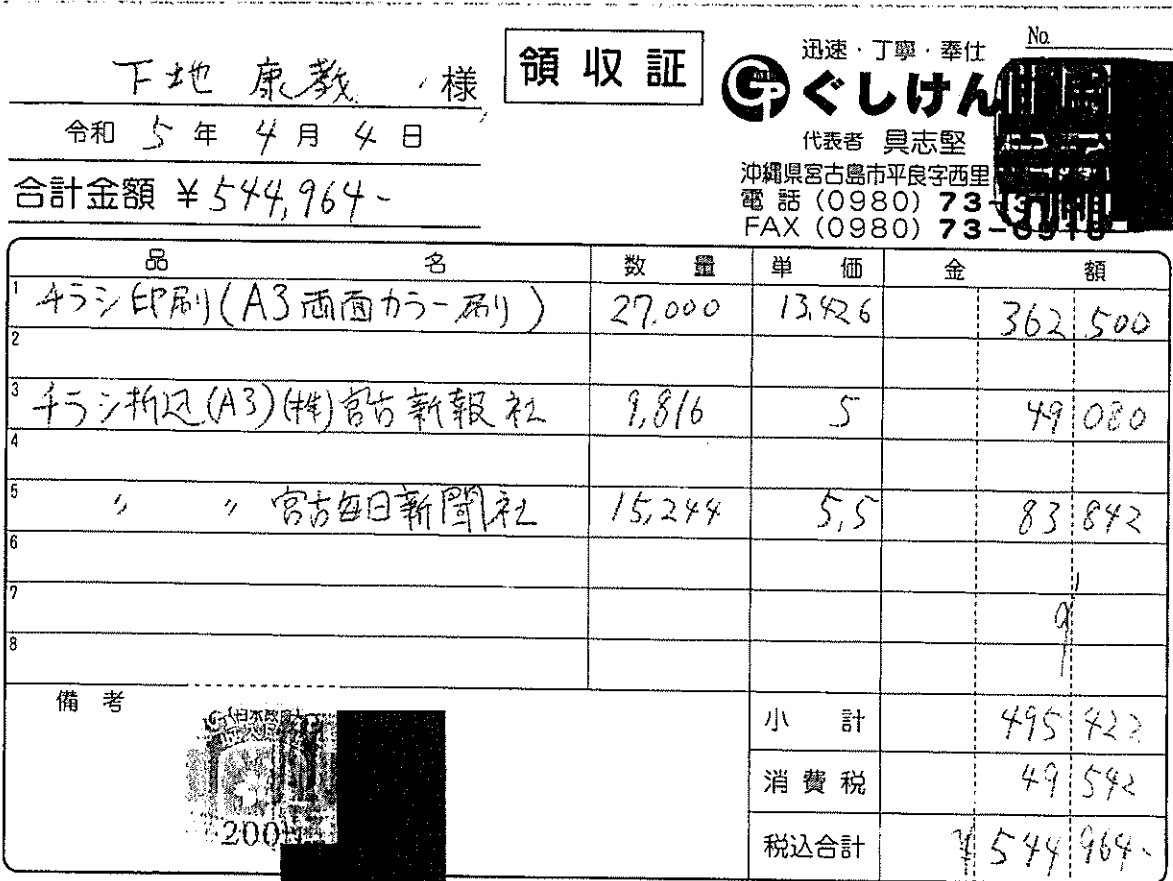 領収証
No.
下地 康教 様
令和 5 年 4 月 4 日
合計金額 ¥544,964-
迅速・丁寧・奉仕
ぐしけん
代表者 具志堅
沖縄県宮古島市平良字西里
電話 (0980) 73-3
FAX (0980) 73-
品名 数量 単価 金額
1 チラシ印刷(A3両面カラー刷り) 27.000 13,426 362 500
2
3 チラシ折込(A3)(株)宮古新報社 9,816 5 49 080
4
5 〃 〃 宮古毎日新聞社 15,244 5,5 83 842
6
7
8
備考
小計 495 422
消費税 49 542
税込合計 ¥544 964-
日本政府
200円